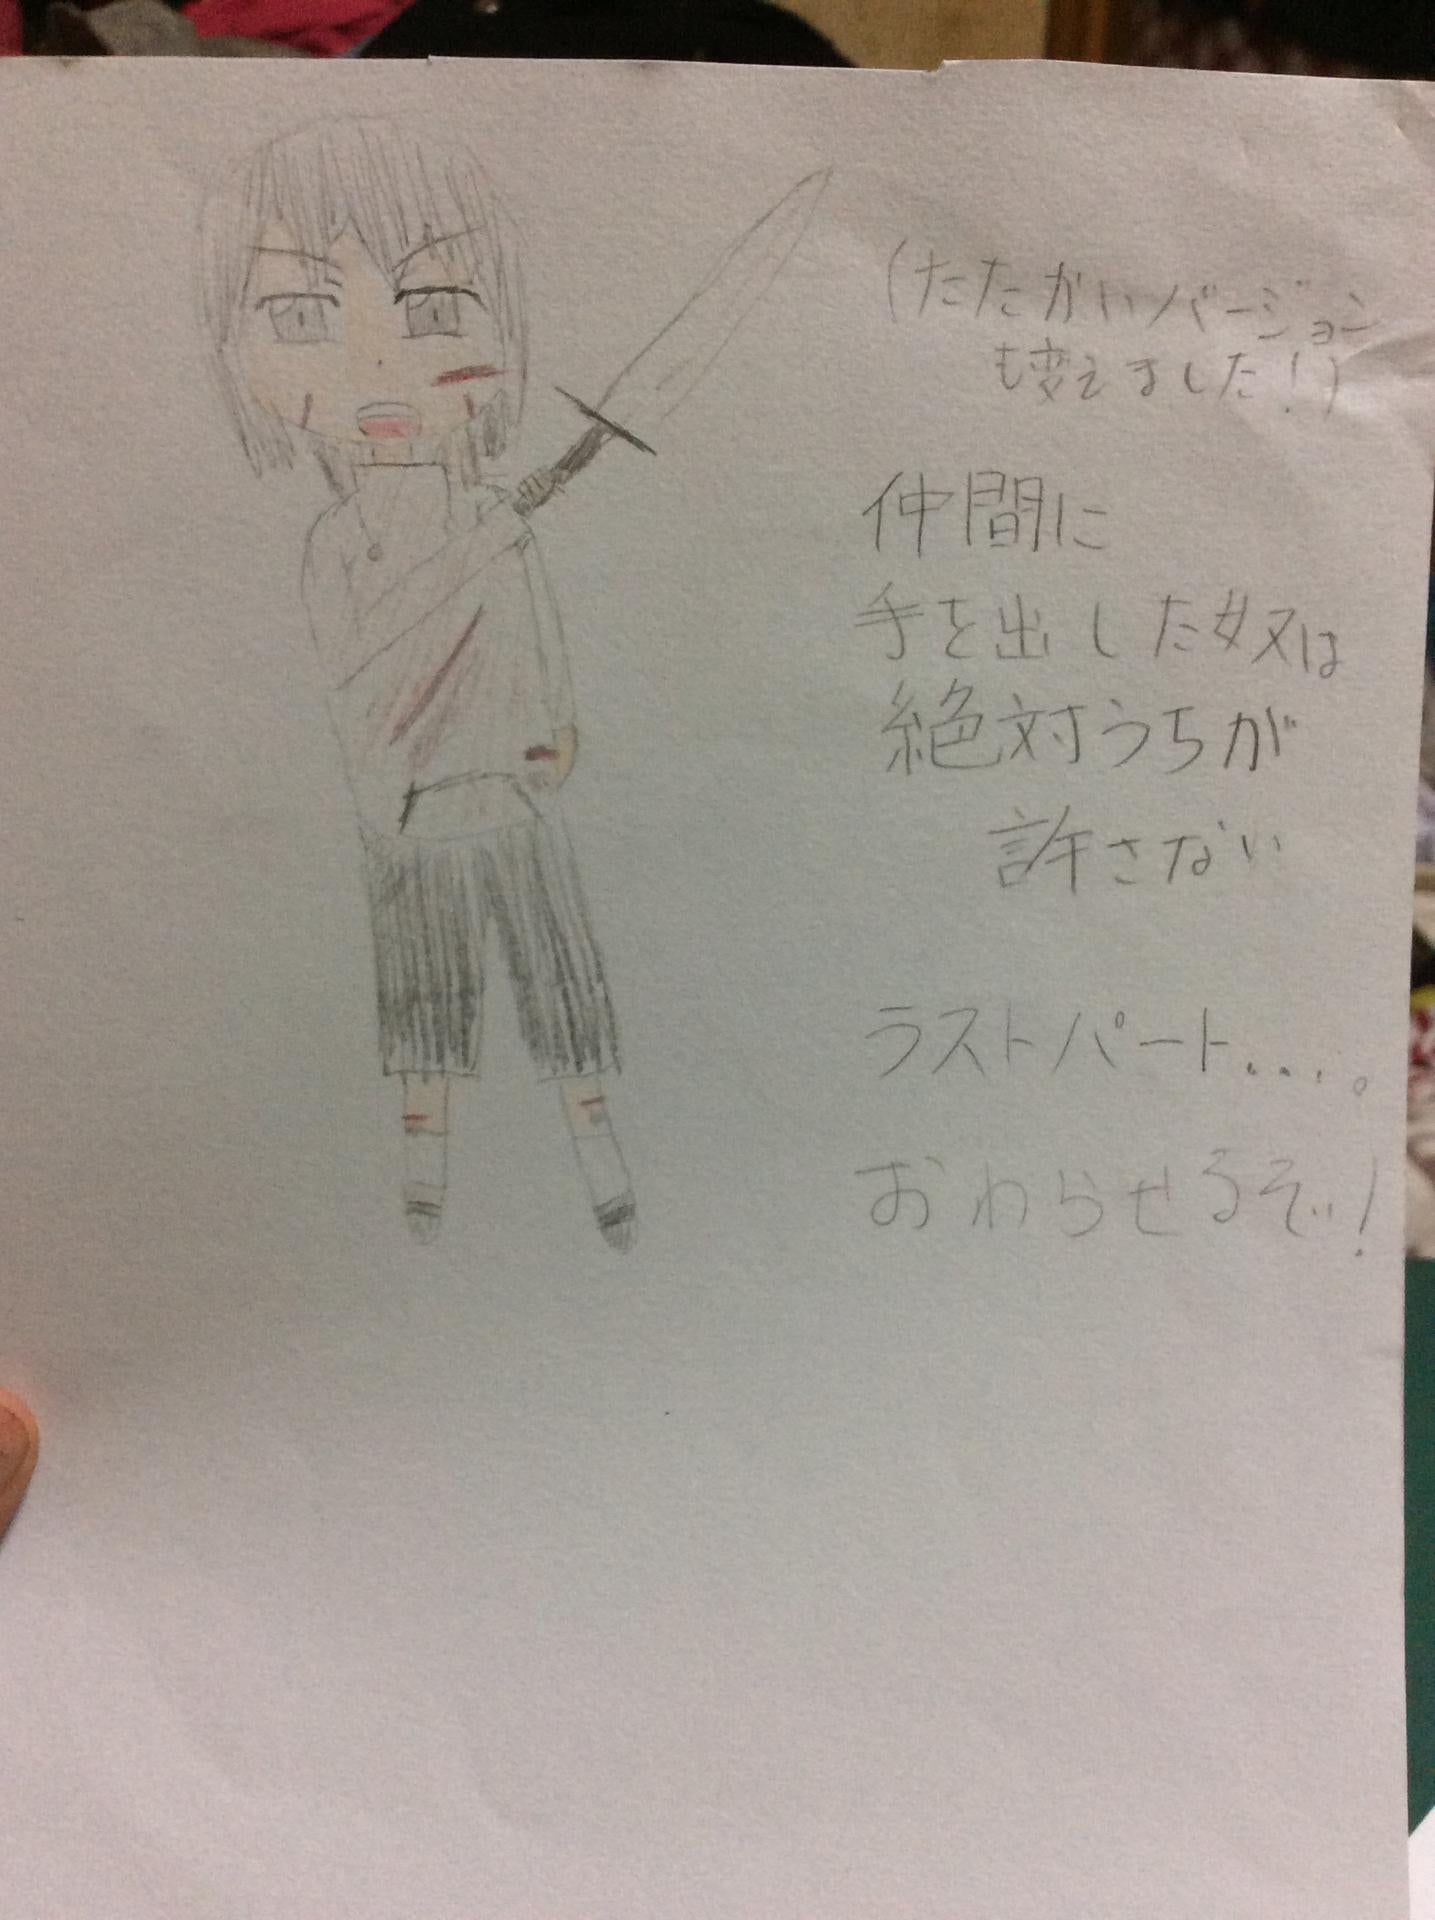 (たたかいバージョン
も変えました！)
仲間に
手を出した奴は
絶対うちが
許さない
ラストパート....。
おわらせるぞ！